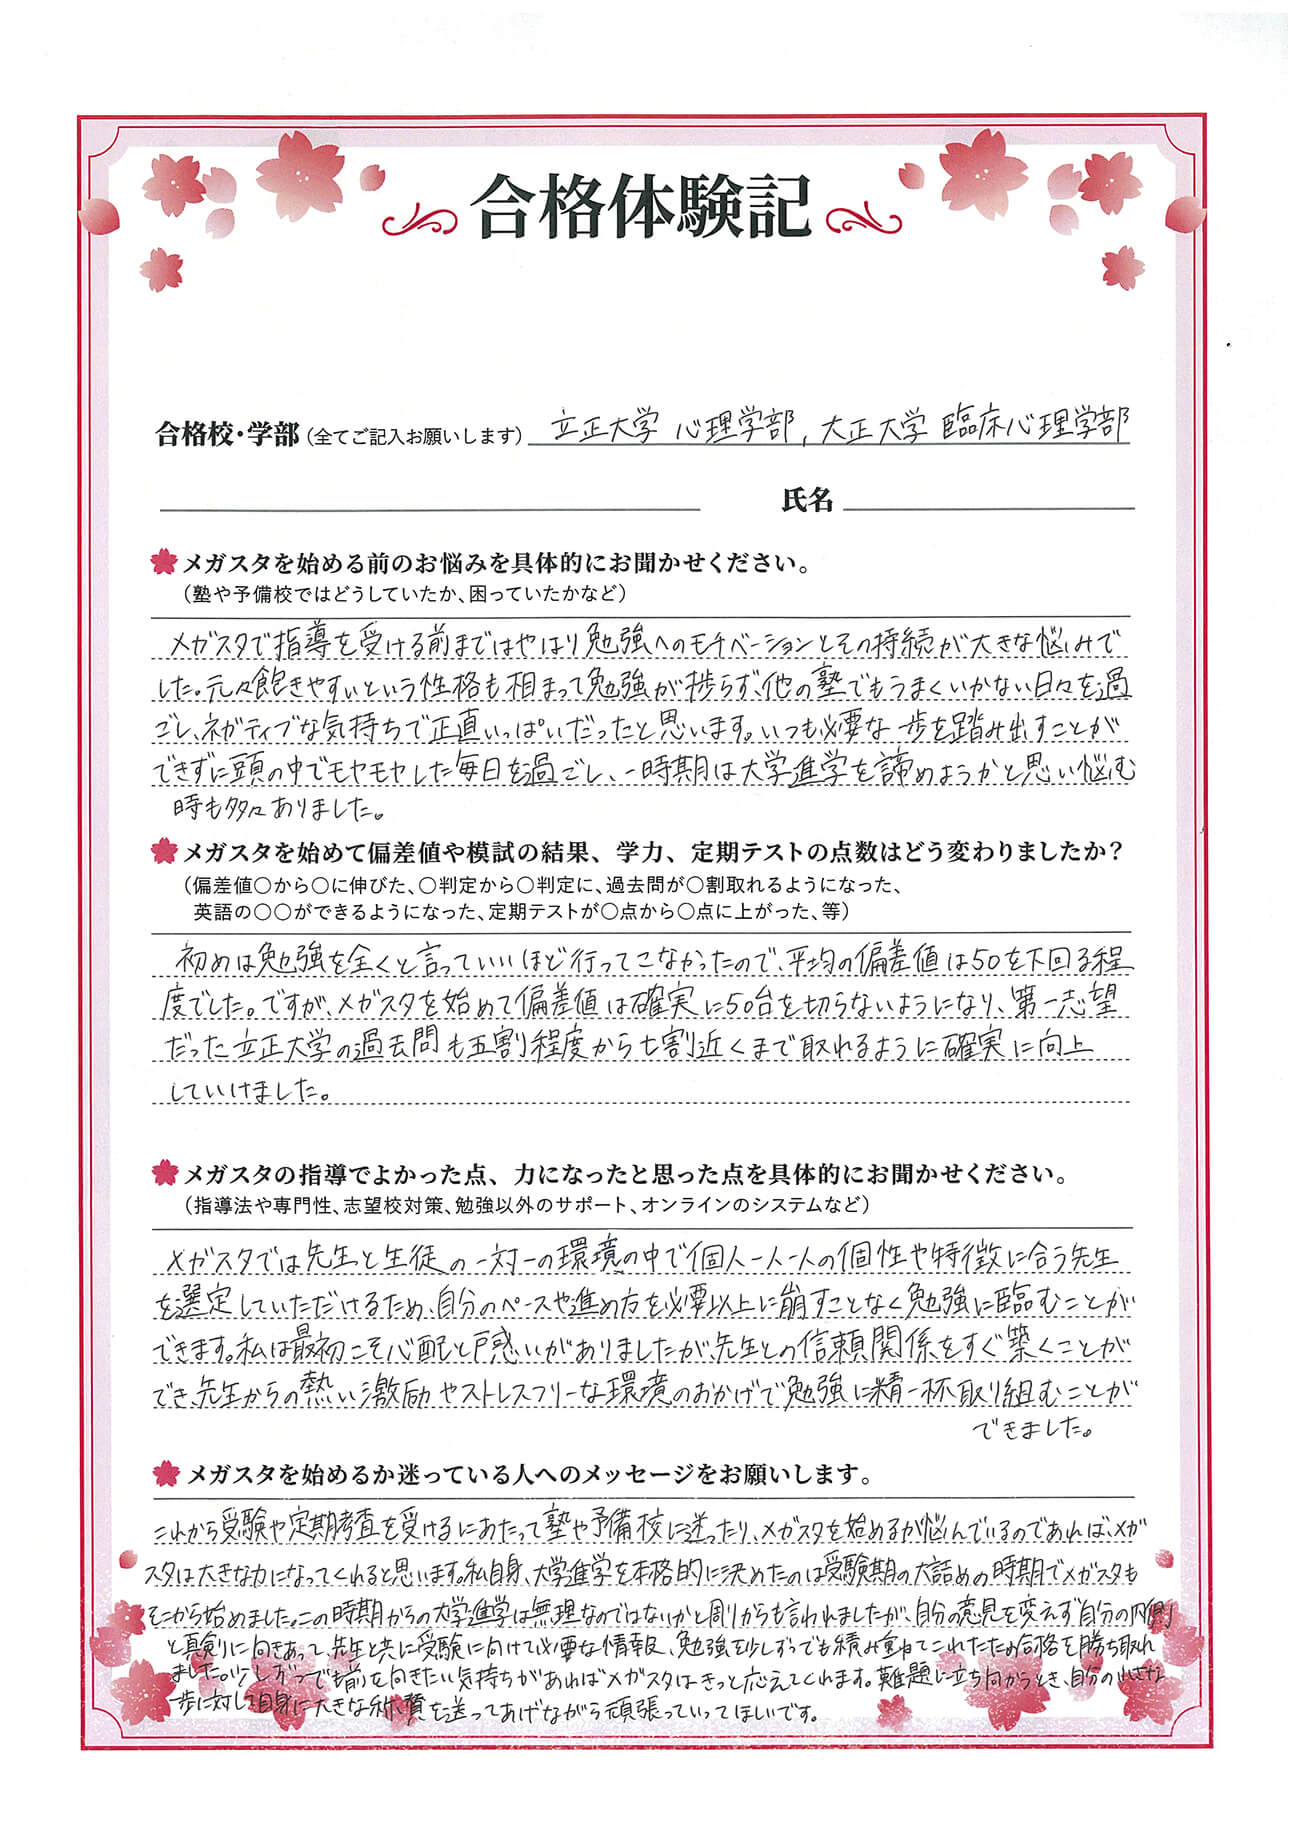 合格体験記
合格校・学部(全てご記入お願いします) 立正大学 心理学部, 大正大学 臨床心理学部
氏名
メガスタを始める前のお悩みを具体的にお聞かせください。
(塾や予備校ではどうしていたか、困っていたかなど)
メガスタで指導を受ける前まではやはり勉強へのモチベーションとその持続が大きな悩みで
した。元々飽きやすいという性格も相まって勉強が捗らず、他の塾でもうまくいかない日々を過
ごし、ネガティブな気持ちで正直いっぱいだったと思います。いつも必要な一歩を踏み出すことが
できずに頭の中でモヤモヤした毎日を過ごし、一時期は大学進学を諦めようかと思い悩む
時も多々ありました。
メガスタを始めて偏差値や模試の結果、学力、定期テストの点数はどう変わりましたか?
(偏差値○から○に伸びた、○判定から○判定に、過去問が○割取れるようになった、
英語の○○ができるようになった、定期テストが○点から○点に上がった、等)
初めは勉強を全くと言っていいほど行ってこなかったので、平均の偏差値は50を下回る程
度でした。ですが、メガスタを始めて偏差値は確実に50台を切らないようになり、第一志望
だった立正大学の過去問も五割程度から七割近くまで取れるように確実に向上
していけました。
メガスタの指導でよかった点、力になったと思った点を具体的にお聞かせください。
(指導法や専門性、志望校対策、勉強以外のサポート、オンラインのシステムなど)
メガスタでは先生と生徒の一対一の環境の中で個人一人一人の個性や特徴に合う先生
を選定していただけるため、自分のペースや進め方を必要以上に崩すことなく勉強に臨むことが
できます。私は最初こそ心配と戸惑いがありましたが、先生との信頼関係をすぐ築くことが
でき、先生からの熱い激励やストレスフリーな環境のおかげで勉強に精一杯取り組むことが
できました。
メガスタを始めるか迷っている人へのメッセージをお願いします。
これから受験や定期考査を受けるにあたって塾や予備校に迷ったり、メガスタを始めるか悩んでいるのであれば、メガ
スタは大きな力になってくれると思います。私自身、大学進学を本格的に決めたのは受験期の大詰めの時期でメガスタも
そこから始めました。この時期からの大学進学は無理なのではないかと周りからも言われましたが、自分の意見を変えず自分の内側
と真剣に向きあって、先生と共に受験に向けて必要な情報、勉強を少しずつでも積み重ねてこれたため合格を勝ち取れ
ました。少しずつでも前を向きたい気持ちがあればメガスタはきっと応えてくれます。難題に立ち向かうとき、自分の小さな
一歩に対して自身に大きな称賛を送ってあげながら頑張っていってほしいです。